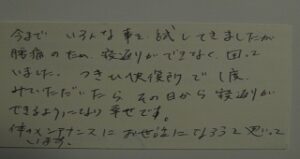 今まで いろんな事を 試してきましたが
腰痛のため、寝返りができなく、困って
いました。つきじ快復所で1度
みていただいたら その日から 寝返りが
できるようになり 幸せです。
体のメンテナンスに お世話になろうと思って
います。